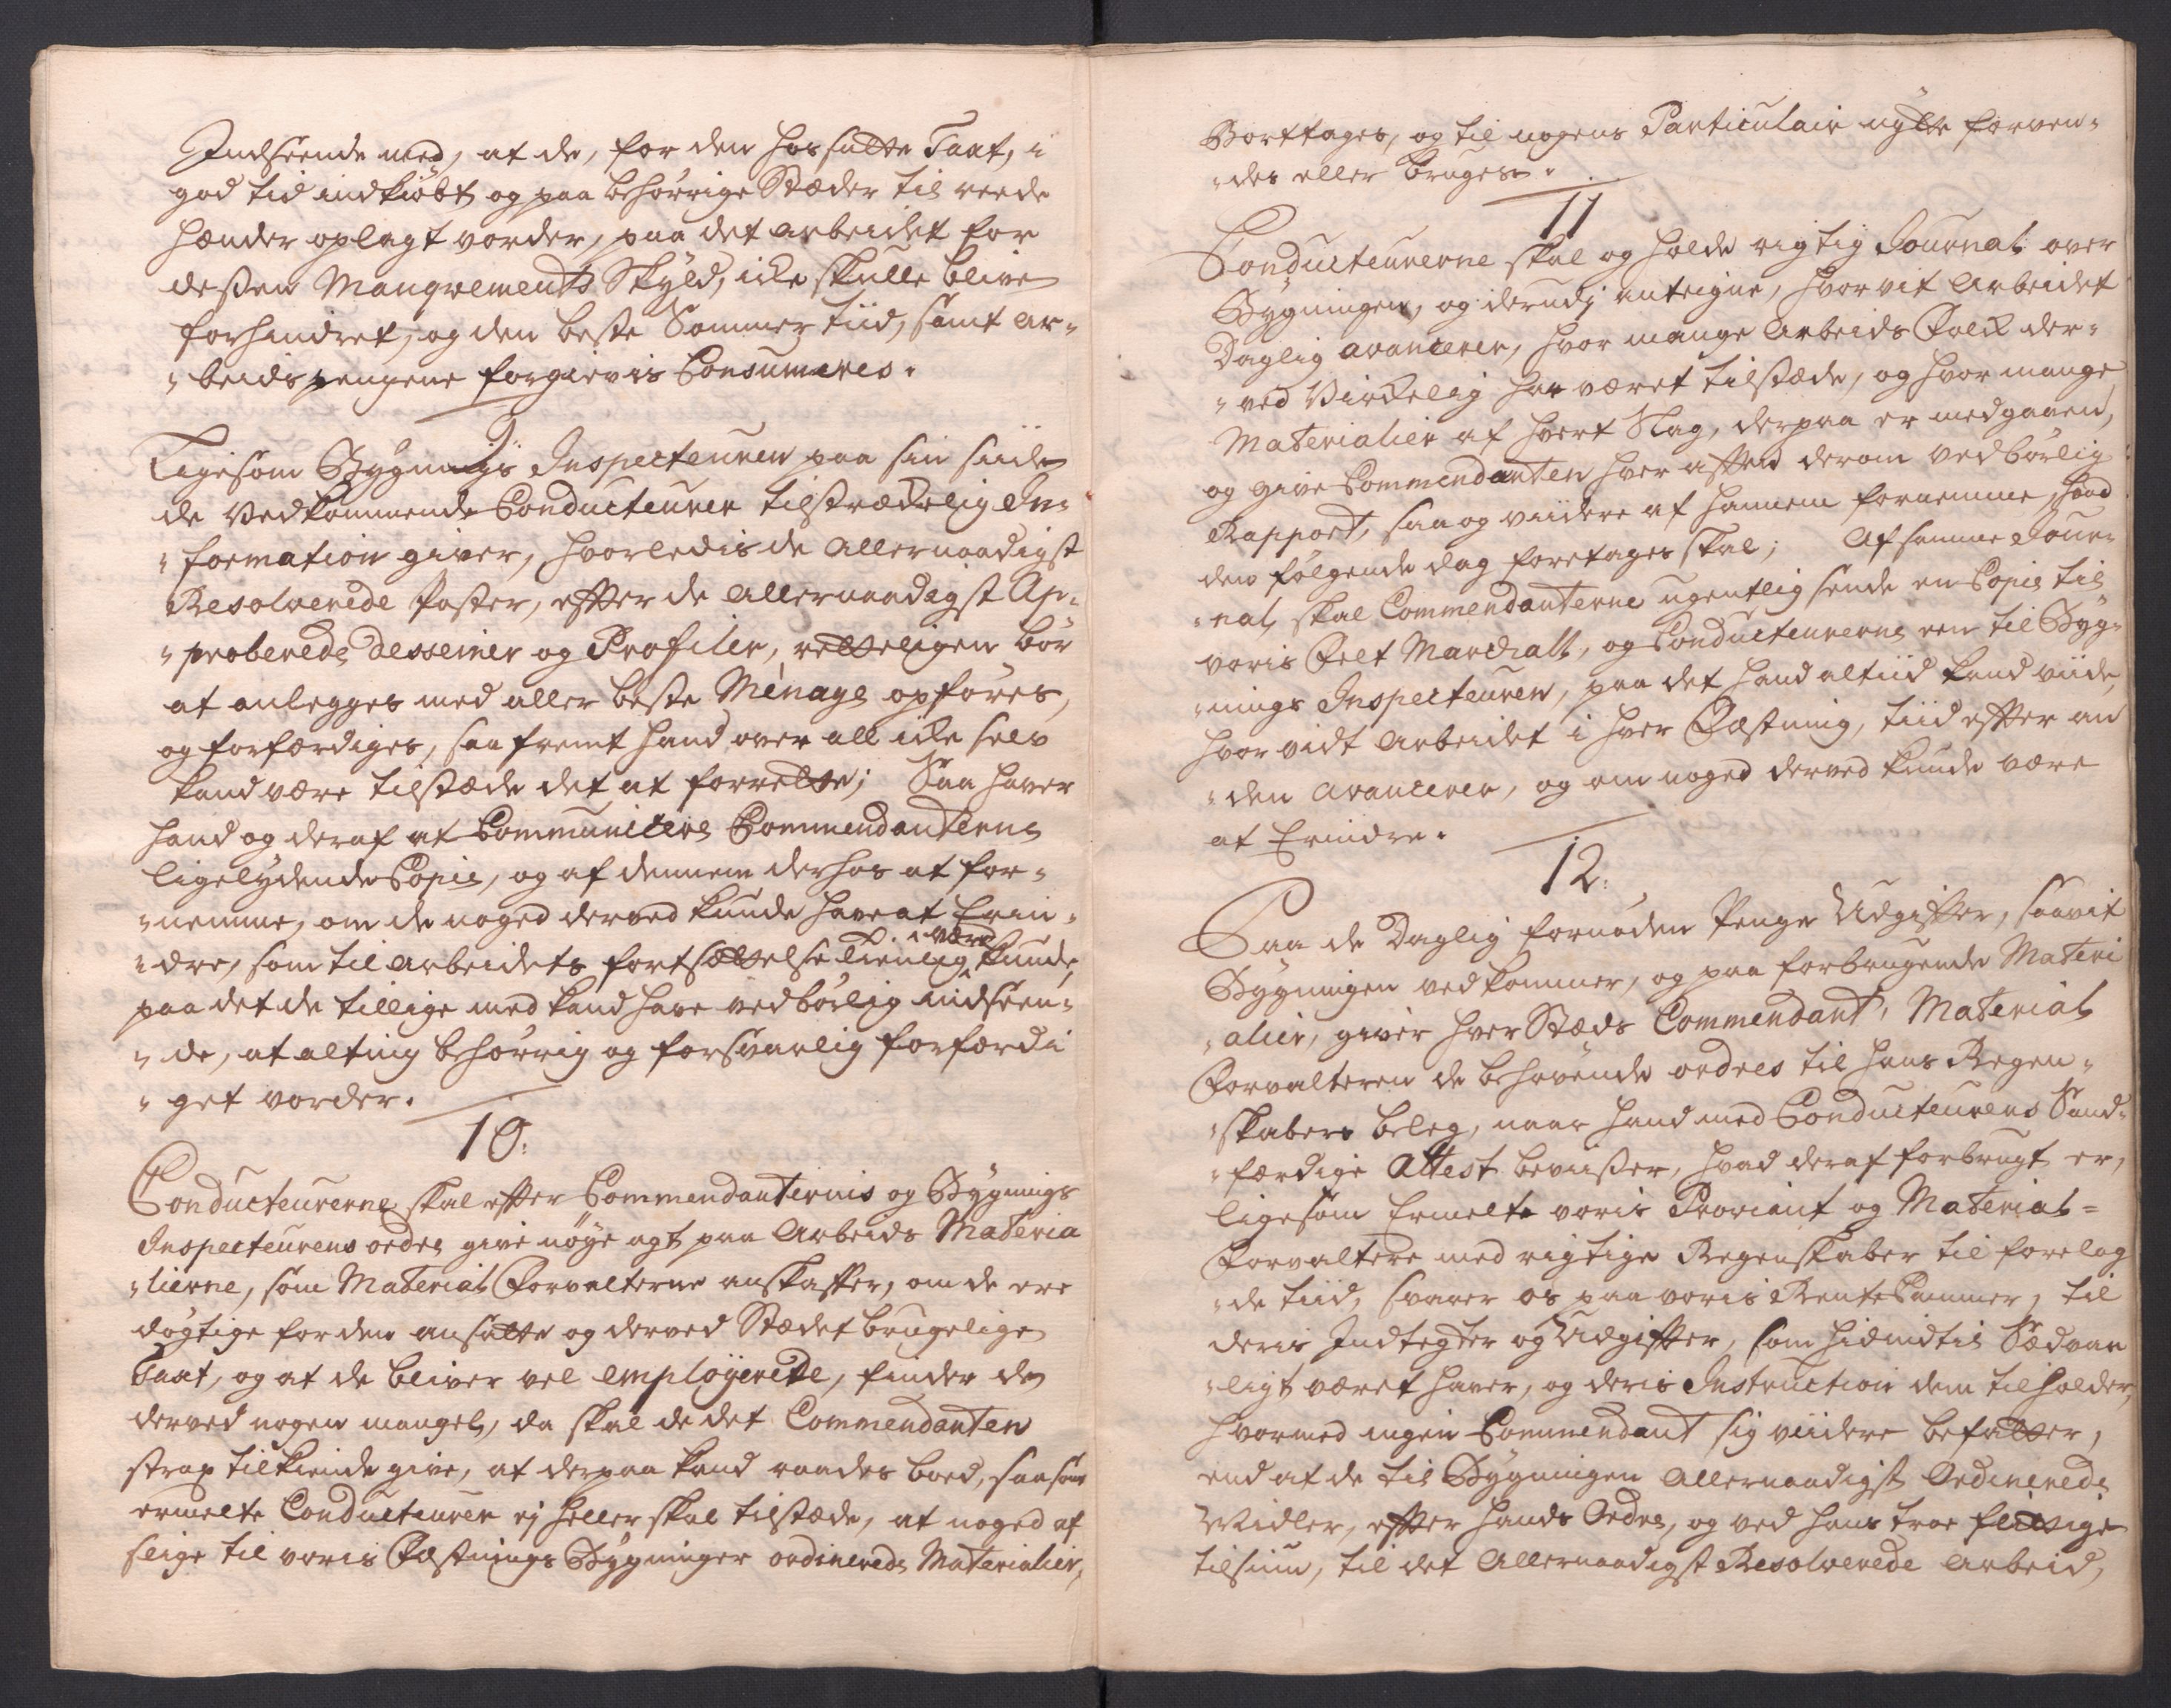 Indseende med, at de, for den hossatte Taxt, i
god tid indkiöbt og paa behörrige Stæder til reede
hænder oplagt vorder, paa det arbeidet for
deßen Manqvements Skyld, icke skulle blive
forhindret, og den beste Sommer tiid, samt Ar-
beids pengene forgievis Consumeres.
9
Ligesom Bygnings Inspecteuren paa sin siide
de Vedkommende Conducteurer tilstræckelig In-
formation giver, hvorledis de Allernaadigst
Resolverede Poster, effter de Allernaadigst Ap-
proberede desseiner og Profiler, retteligen bör
at anlegges med aller beste Menage opföres,
og forfærdiges, saa fremt hand over all icke selv
kand være tilstæde det at forrette; Saa haver
hand og deraf at Communicere Commendanterne
ligelydende Copie, og af dennem derhos at for-
nemme, om de noged derved kunde have at Erin-
være
dre, som til arbeidets fortsættelse tienlig kunde,
paa det de tillige med kand have vedbörlig indseen-
de, at alting behörrig og forsvarlig forfærdi
get vorder.
10:
Conducteurerne skal effter Commendanternis og Bygnings
Inspecteurens ordre give nöye agt paa Arbeids Materia
lierne, som Material Forvalterne anskaffer, om de ere
dögtige for den ansatte og derved Stædet brugelige
Taxt, og at de bliver vel employerede, finder de
derved nogen mangel, da skal de det Commendanten
strax tilkiende give, at derpaa kand raades boed, saasom
ermelte Conducteurer ej heller skal tilstæde, at noged af
slige til voris Fæstnings Bygninger ordinerede Materialier,
Borttages, og til nogens Particulair nytte forven-
des eller bruges.
11
Conducteurerne skal og holde rigtig Journal over
Bygningen, og derudj anteigne, hvor vit Arbeidet
Daglig avancerer, hvor mange Arbeids Folck der-
ved Virckelig har været tilstæde, og hvor mange
Materialier af hvert Slag, derpaa er medgaaen,
og give Commendanten hver afften derom vedbörlig
Rapport, saa og viidere af hannem fornemme, hvad
den fölgende dag foretages skal; Af samme Jour-
nal, skal Commendanterne ugentlig sende en Copie til
voris Felt Marchalk, og Conducteurerne een til Byg-
nings Inspecteuren, paa det hand altiid kand viide,
hvor vidt Arbeidet i hver Fæstning, tiid effter an
den avancerer, og om noged derved kunde være
at Erindre.
12:
Paa de Daglig fornöden Penge Udgiffter, saavit
Bygningen vedkommer, og paa forbrugende Materi
alier, giver hver Stæds Commendant, Material
Forvalteren de behövende ordres til hans Regen-
skabers beleg, naar hand med Conducteurens Sand-
færdige Attest beviißer, hvad deraf forbrugt er,
ligesom Ermelte voris Proviant og Material-
Forvaltere med rigtige Regenskaber til forelag
de tiid, svarer os paa voris Rente Cammer, til
deris Indtegter og Udgiffter, som hidindtil Sædvan
ligt været haver, og deris Instruction dem tilholder,
hvormed ingen Commendant sig viidere befatter,
end at de til Bygningen Allernaadigst Ordinerede
Midler, effter hands Ordre, og ved hans troe flittige
tilsiun, til det Allernaadigst Resolverede Arbeid,